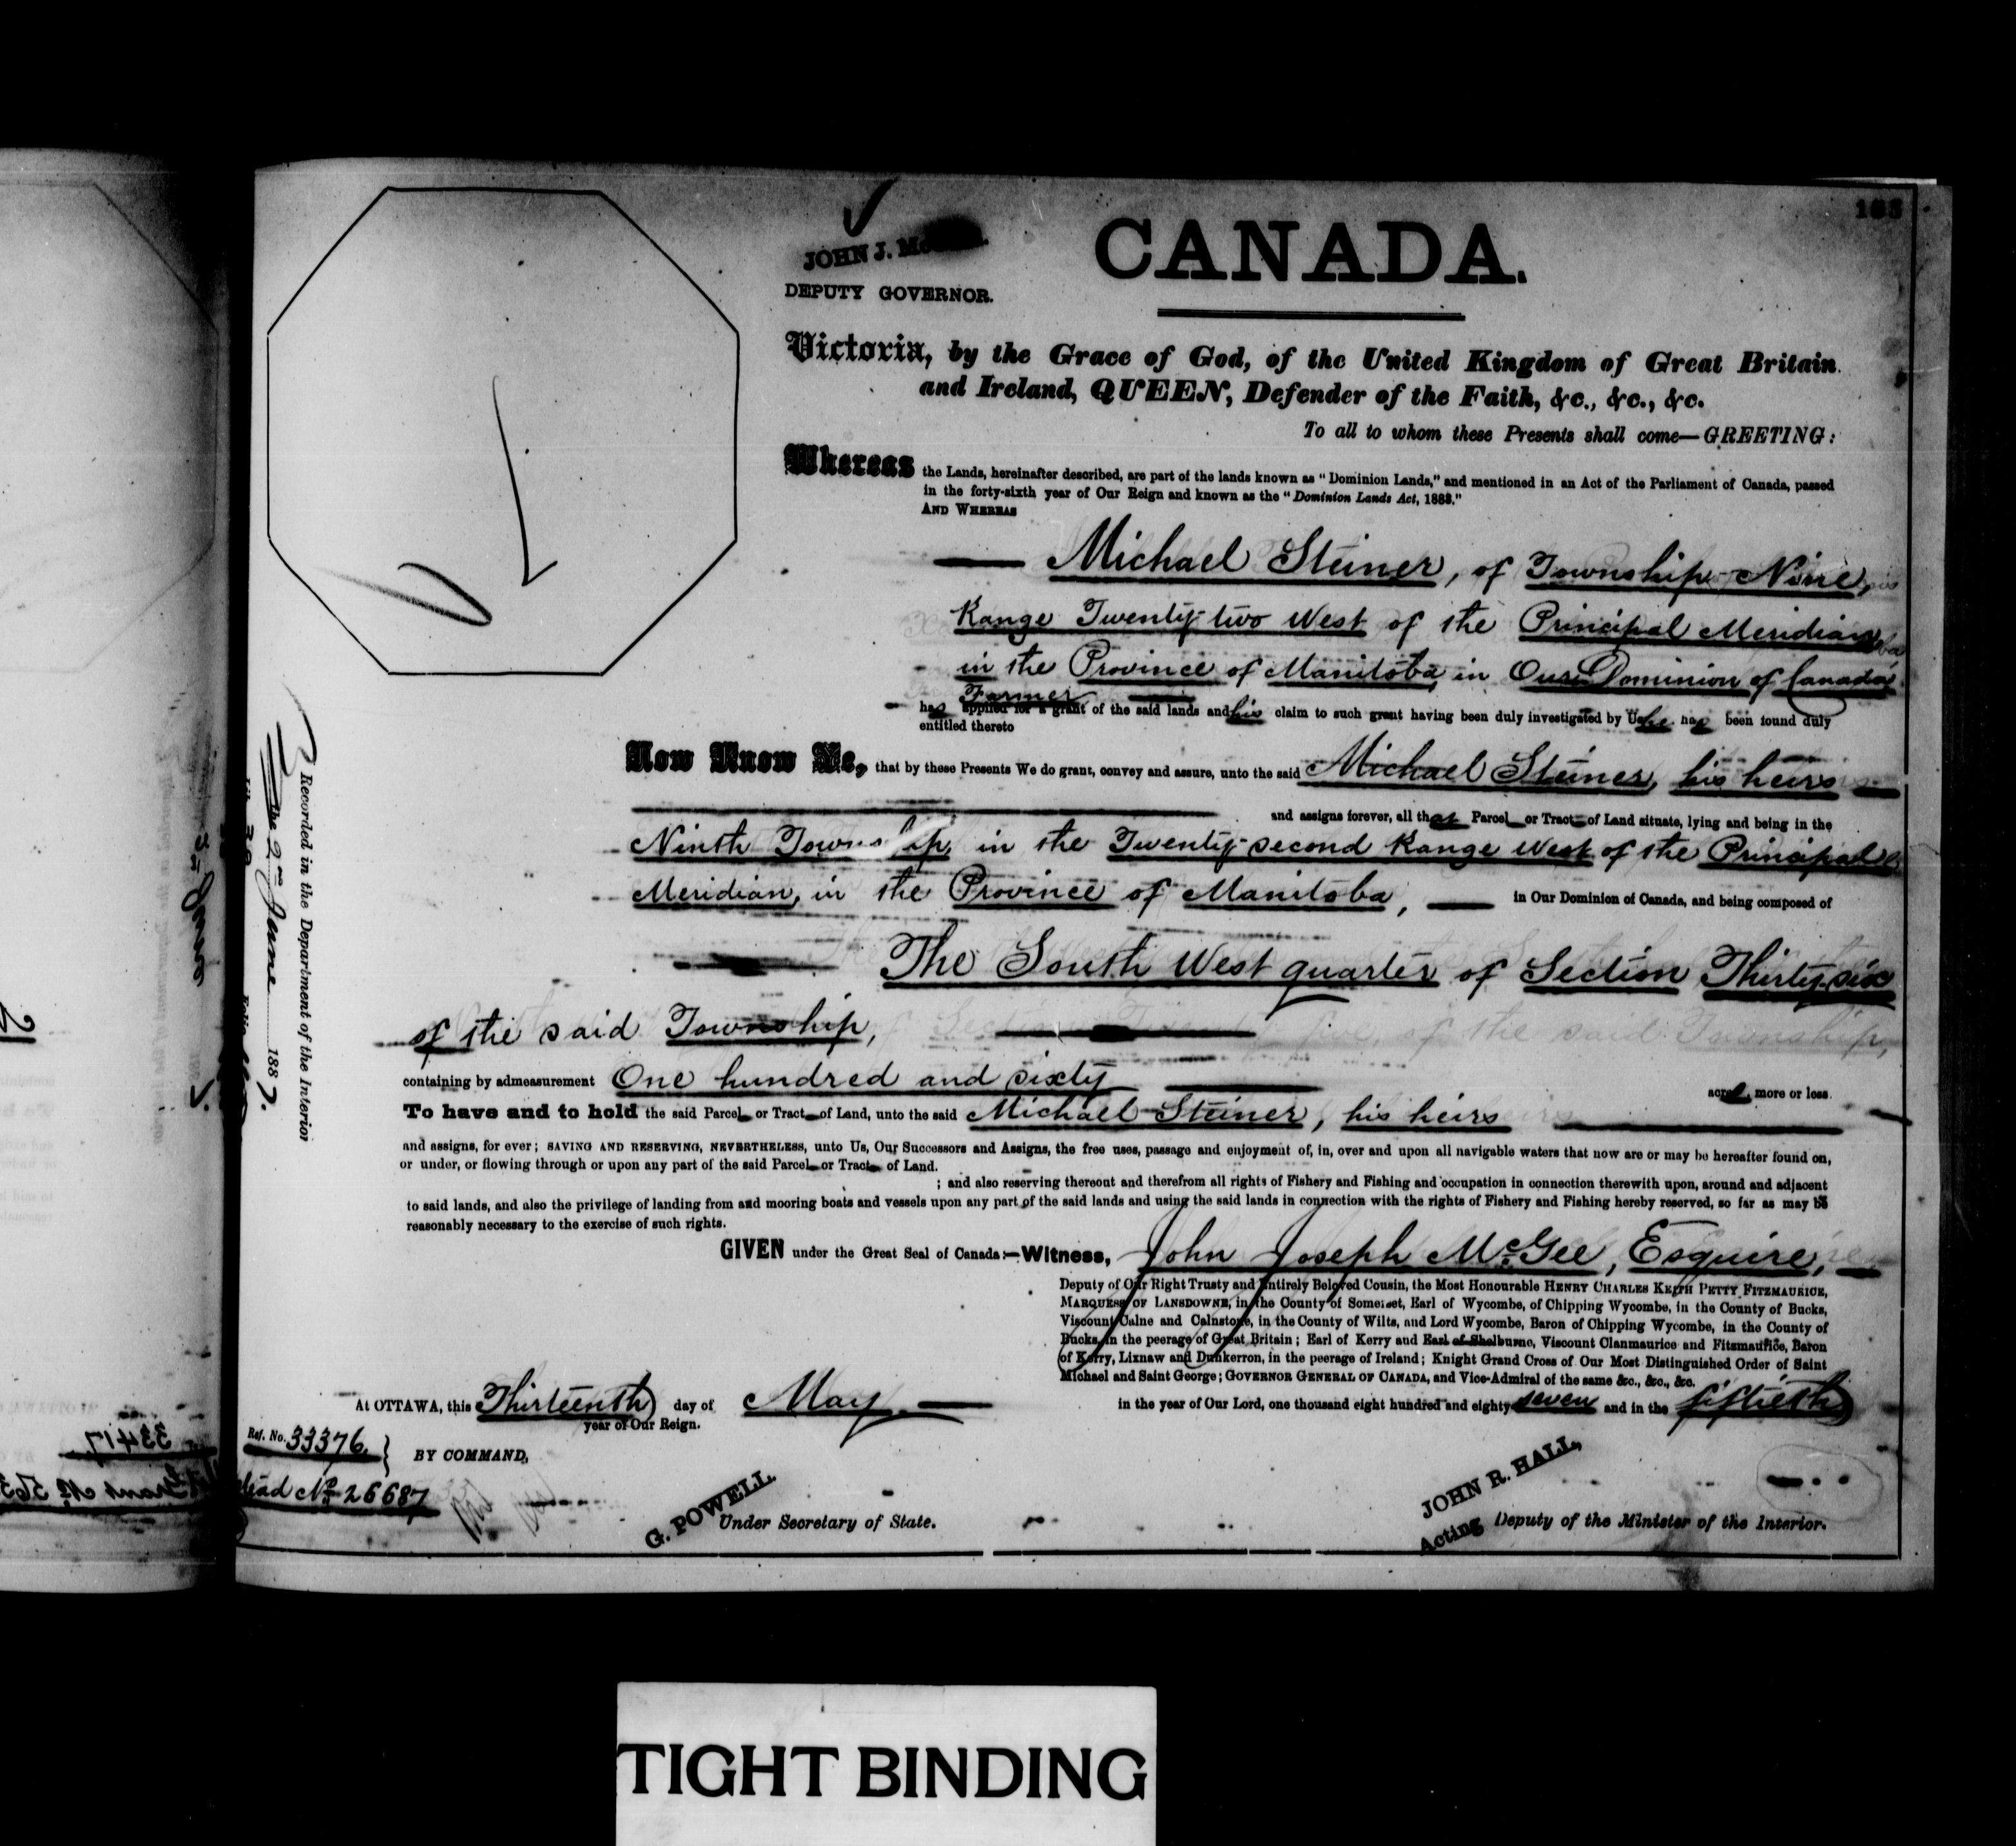 CANADA.
JOHN J.
DEPUTY GOVERNOR.
Victoria, by the Grace of God, of the United Kingdom of Great Britain
and Ireland, QUEEN, Defender of the Faith, &c., &c., &c.
To all to whom these Presents shall come—GREETING:
Whereas the Lands, hereinafter described, are part of the lands known as "Dominion Lands," and mentioned in an Act of the Parliament of Canada, passed
in the forty-sixth year of Our Reign and known as the "Dominion Lands Act, 1883."
AND WHEREAS
Michael Steiner, of Township Nine,
Range Twenty-two West of the Principal Meridian
in the Province of Manitoba, in Our Dominion of Canada,
Farmer
has applied for a grant of the said lands and his claim to such grant having been duly investigated by Us he has been found duly
entitled thereto
Now Know Ye, that by these Presents We do grant, convey and assure, unto the said Michael Steiner, his heirs
and assigns forever, all that Parcel or Tract of Land situate, lying and being in the
Ninth Township, in the Twenty-second Range West of the Principal
Meridian, in the Province of Manitoba, in Our Dominion of Canada, and being composed of
The South West quarter of Section Thirty-six
of the said Township,
containing by admeasurement One hundred and sixty acres, more or less.
To have and to hold the said Parcel or Tract of Land, unto the said Michael Steiner, his heirs
and assigns, for ever; SAVING AND RESERVING, NEVERTHELESS, unto Us, Our Successors and Assigns, the free uses, passage and enjoyment of, in, over and upon all navigable waters that now are or may be hereafter found on,
or under, or flowing through or upon any part of the said Parcel or Tract of Land.
; and also reserving thereout and therefrom all rights of Fishery and Fishing and occupation in connection therewith upon, around and adjacent
to said lands, and also the privilege of landing from and mooring boats and vessels upon any part of the said lands and using the said lands in connection with the rights of Fishery and Fishing hereby reserved, so far as may be
reasonably necessary to the exercise of such rights.
GIVEN under the Great Seal of Canada:—Witness, John Joseph McGee, Esquire,
Deputy of Our Right Trusty and Entirely Beloved Cousin, the Most Honourable HENRY CHARLES KEITH PETTY FITZMAURICE,
MARQUESS OF LANSDOWNE, in the County of Somerset, Earl of Wycombe, of Chipping Wycombe, in the County of Bucks,
Viscount Calne and Calnstone, in the County of Wilts, and Lord Wycombe, Baron of Chipping Wycombe, in the County of
Bucks, in the peerage of Great Britain; Earl of Kerry and Earl of Shelburne, Viscount Clanmaurice and Fitzmaurice, Baron
of Kerry, Lixnaw and Dunkerron, in the peerage of Ireland; Knight Grand Cross of Our Most Distinguished Order of Saint
Michael and Saint George; GOVERNOR GENERAL OF CANADA, and Vice-Admiral of the same &c., &c., &c.
At OTTAWA, this Thirteenth day of May in the year of Our Lord, one thousand eight hundred and eighty seven and in the fiftieth
year of Our Reign.
Ref. No. 33376.
BY COMMAND,
No 26687
G. POWELL.
Under Secretary of State.
JOHN R. HALL,
Acting Deputy of the Minister of the Interior.
Recorded in the Department of the Interior
the 2nd June 1887.
33417
TIGHT BINDING